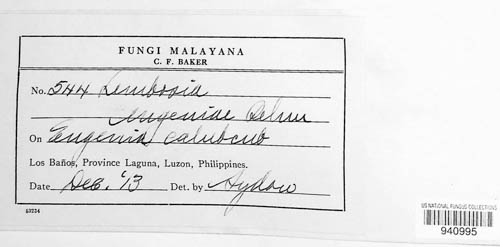 FUNGI MALAYANA
C. F. BAKER
No. 544 Lembosia
Eugeniae Rehm
On Eugenia calubcub
Los Baños, Province Laguna, Luzon, Philippines.
Date Dec. '13 Det. by Sydow
63234
US NATIONAL FUNGUS COLLECTIONS
940995